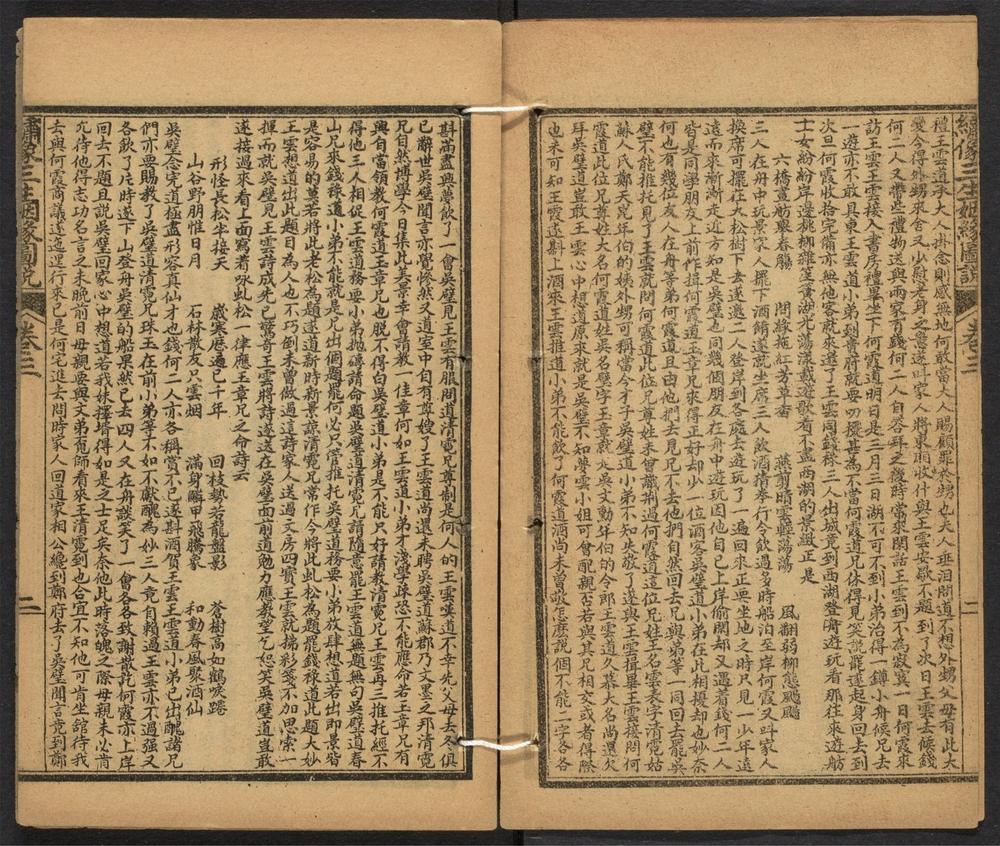 繡像三生姻緣圖說 卷三 二
禮王雲道承大人掛念則感無地何敢當大人賜顧罪於甥也夫人垂淚問道不想外甥父母有此大
變今得外甥來舍又少慰老身之意遂叫家人將東西收什與王雲安歇不題到了次日王雲去候錢
何二人又帶些禮物送與兩家有錢何二人自答拜之後時常來閑話王雲到不為寂寞一日何霞來
訪王雲王雲接入書房禮畢坐下何霞道明日是三月三日湖不可不到小弟治得一鐏小舟候兄去
一遊亦不敢具東王雲道小弟到貴府就要叨擾甚為不當何霞道兄休得見笑說罷遂起身回去到
次旦何霞收拾完備亦無他客就來邀了王雲同錢祿三人出城竟到西湖登舟遊玩看那往來遊舫
士女紛紛岸邊桃柳雜笼黃湖光蕩漾戲遊歌者不盡西湖的景緻正是
六橋畫舫聚春觴 問緣拖紅芳草香 燕剪晴雲輕蕩蕩 風翻弱柳態颺颺
三人在舟中玩景家人擺下酒餚遂就坐席三人飲酒猜拳行令飲過多時船泊至岸何霞又叫家人
換席可擺在大松樹下去遂邀二人登岸到各處去遊玩了一遍回來正要坐地之時只見一少年遠
遠而來漸漸走近方知是吳璧也同幾個朋友在舟中遊玩因他自己上岸偷閑却又遇着錢何二人
皆是同學朋友上前作揖何霞道玉章兄來得正好却少一位酒客吳璧道小弟在此相擾却也妙奈
何也有幾位友人在舟等弟何霞道且由他們去見兄不去他們自然回去兄與弟等一同回去罷吳
璧不能推托見了王雲就問何霞道此位兄尊姓未曾識荆過何霞道這位兄姓王名雲表字清霓姑
蘇人氏鄭天昆年伯的姨外甥可稱當今才子吳璧道小弟不知失敬了遂與王雲揖畢王雲接問何
霞道此位兄尊姓大名何霞道姓吳名璧字玉章就是吳文勳年伯的令郎王雲道久慕大名尚還欠
拜吳璧道豈敢王雲心中想道原來就是吳璧不知夢雲小姐可曾配親否若與其兄相交或者得際
也未可知王雲遂斟上酒王雲推道小弟不能飲了何霞道酒尚未曾敬怎麽說個不能二字各各
斟滿盡興夢飲了一會吳璧見王雲有服問道清霓兄尊制是何人的王雲嘆道不幸先父母去冬俱
已辭世吳璧聞言亦覺慘然又道室中自有尊嫂了王雲道尚還未聘吳璧道蘇郡乃文墨之邦清霓
兄自然博學今日集此美景幸會請教一佳章何如王雲道小弟才淺學疎恐不能應命若玉章兄有
興自當領教何霞道王章兄也脱不得白吳璧道小弟是不能只好請教清霓兄王雲再三推托經不
得他三人相促王雲道務要小弟抛磚請命題吳璧道清霓兄請隨意罷王雲道無題無句吳璧道春
山兄來錢祿道小弟不能就是兄出個題罷何必只管推托吳璧道務要小弟放肆想道若出即景皆
是容易的莫若將此老松為題遂道新時新景諒清霓兄常作今將此虬松為題罷錢祿道此題大妙
王雲想道出此題目為人也不巧倒未曾做過這詩家人送過文房四寳王雲就揚彩箋不加思索一
揮而就吳璧見王雲詩成先已驚奇王雲將詩遂送在吳璧面前道勉力應教望乞恕笑吳璧道豈敢
遂接過來看上面寫着咏虬松一律應玉章兄之命詩云
形怪長松半接天 歲寒歷過已千年 回枝勢若龍盤影 蒼樹高如鶴唳踡
山谷野朋惟日月 石林散友只雲烟 滿身鱗甲飛騰象 和動春風聚酒仙
吳璧念完道極盡形容真仙才也錢何二人亦各稱賞不已遂斟酒賀王雲王雲道小弟已出醜請兄
們亦要賜教了吳璧道清霓兄珠玉在前小弟等不如不獻醜為妙三人竟自賴過王雲亦不過強又
各飲了片時遂下山登舟吳璧的船果然已去四人又在舟談笑了一會各各致謝散訖何霞亦上岸
回去不題且說吳璧回家心中想道若我妹擇壻得如是之士足矣奈他此時落魄之際母親未必肯
允待他得志功名言之未晚前日母親要與文弟覓師看來王清霓到也合宜不知他可肯坐館待我
去與何霞商議遂迤邐行來已是何宅進去問時家人回道家相公纔到鄭府去了吳璧聞言竟到鄭
繡像三生姻緣圖說 卷三 二